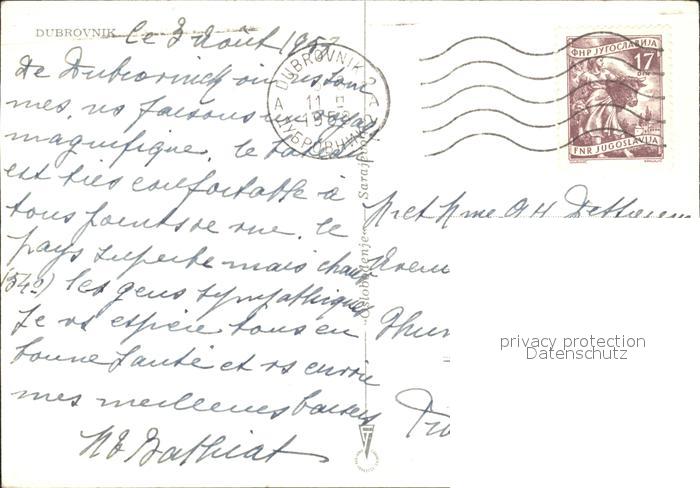 DUBROVNIK
le 3 Août 1953
De Dubrovnick où ns som
mes, ns faisons un voyage
magnifique. le bateau
est très confortable à
tous points de vue, le
pays superbe mais chaud
(54°) les gens sympathiques
Je vs espère tous en
bonne santé et vs envoie
mes meilleures baisers
DUBROVNIK 2
A A
11
ДУБРОВНИК 2
ФНР ЈУГОСЛАВИЈА
17
DIN
FNR JUGOSLAVIJA
"Oslobođenje" Sarajevo
M et Mme
privacy protection
Datenschutz